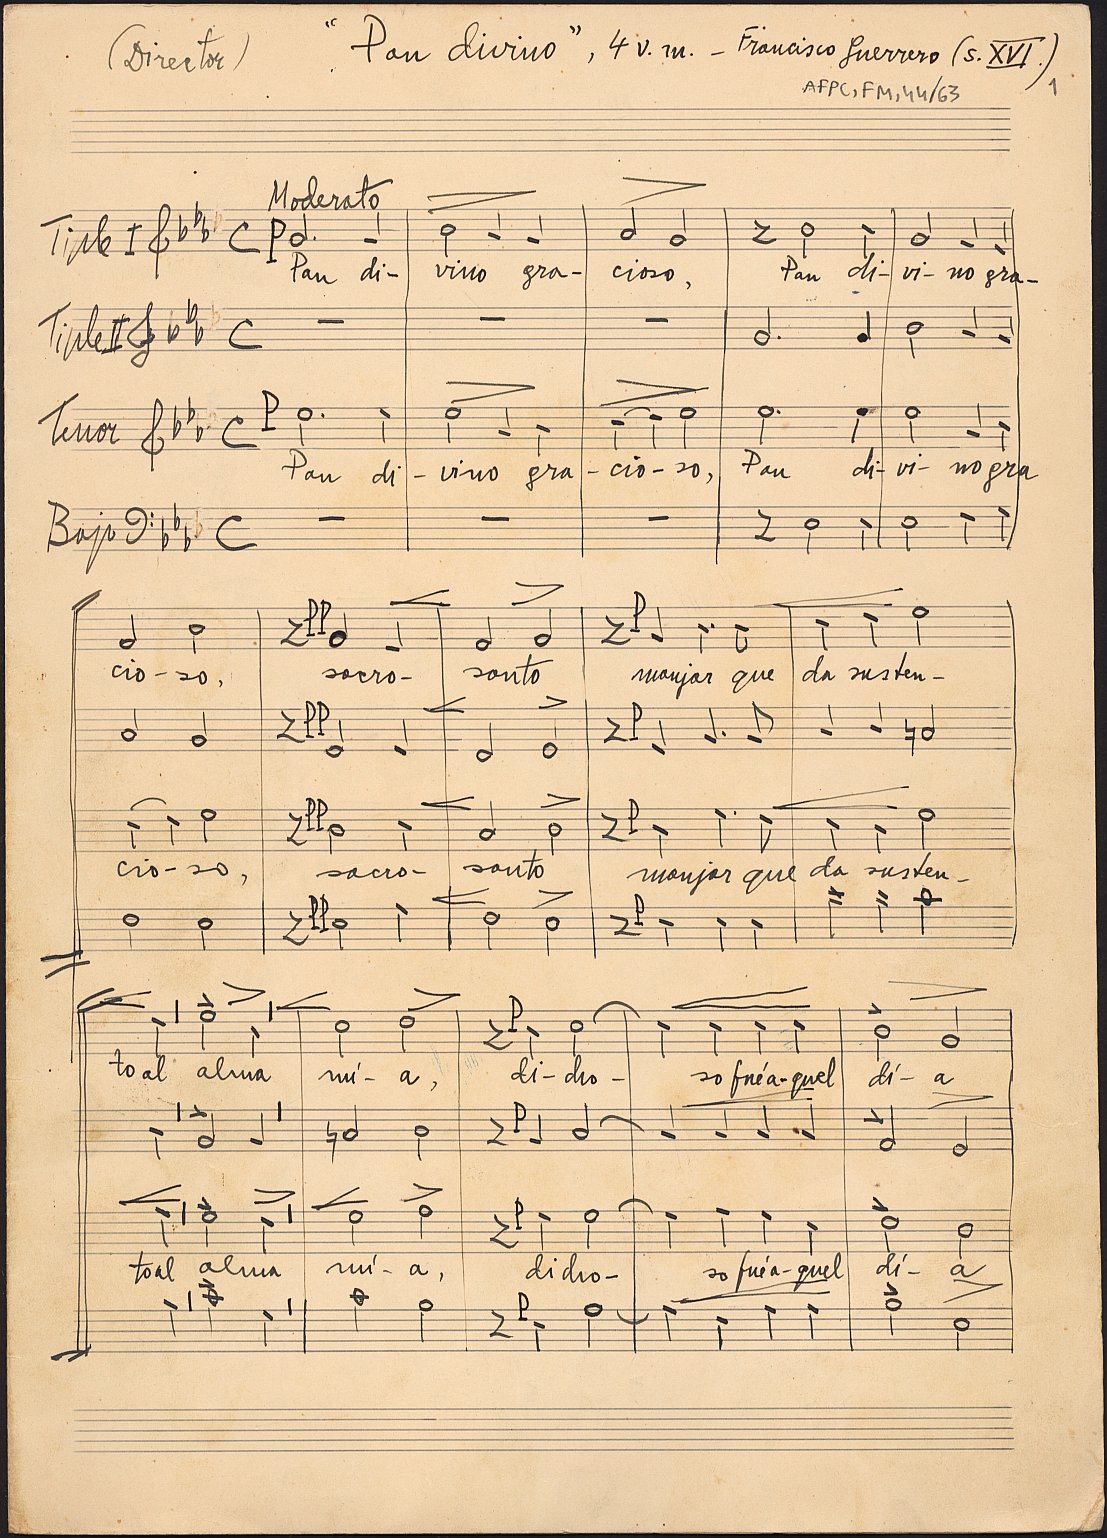 (Director) "Pan divino", 4 v. m. - Francisco Guerrero (s. XVI.)
AFPC, FM, 44/63 1
Moderato
Tiple I C P
Pan di- vino gra- cioso, Pan di- vi- no gra-
Tiple II C
Tenor C P
Pan di- vino gra- cio-so, Pan di- vi- no gra
Bajo C
PP P
cio-so, sacro- santo manjar que da susten-
PP P
PP P
cio-so, sacro- santo manjar que da susten-
PP P
P
to al alma mí- a, di-cho- so fué a-quel dí- a
P
P
to al alma mí- a, dicho- so fué a-quel dí- a
P